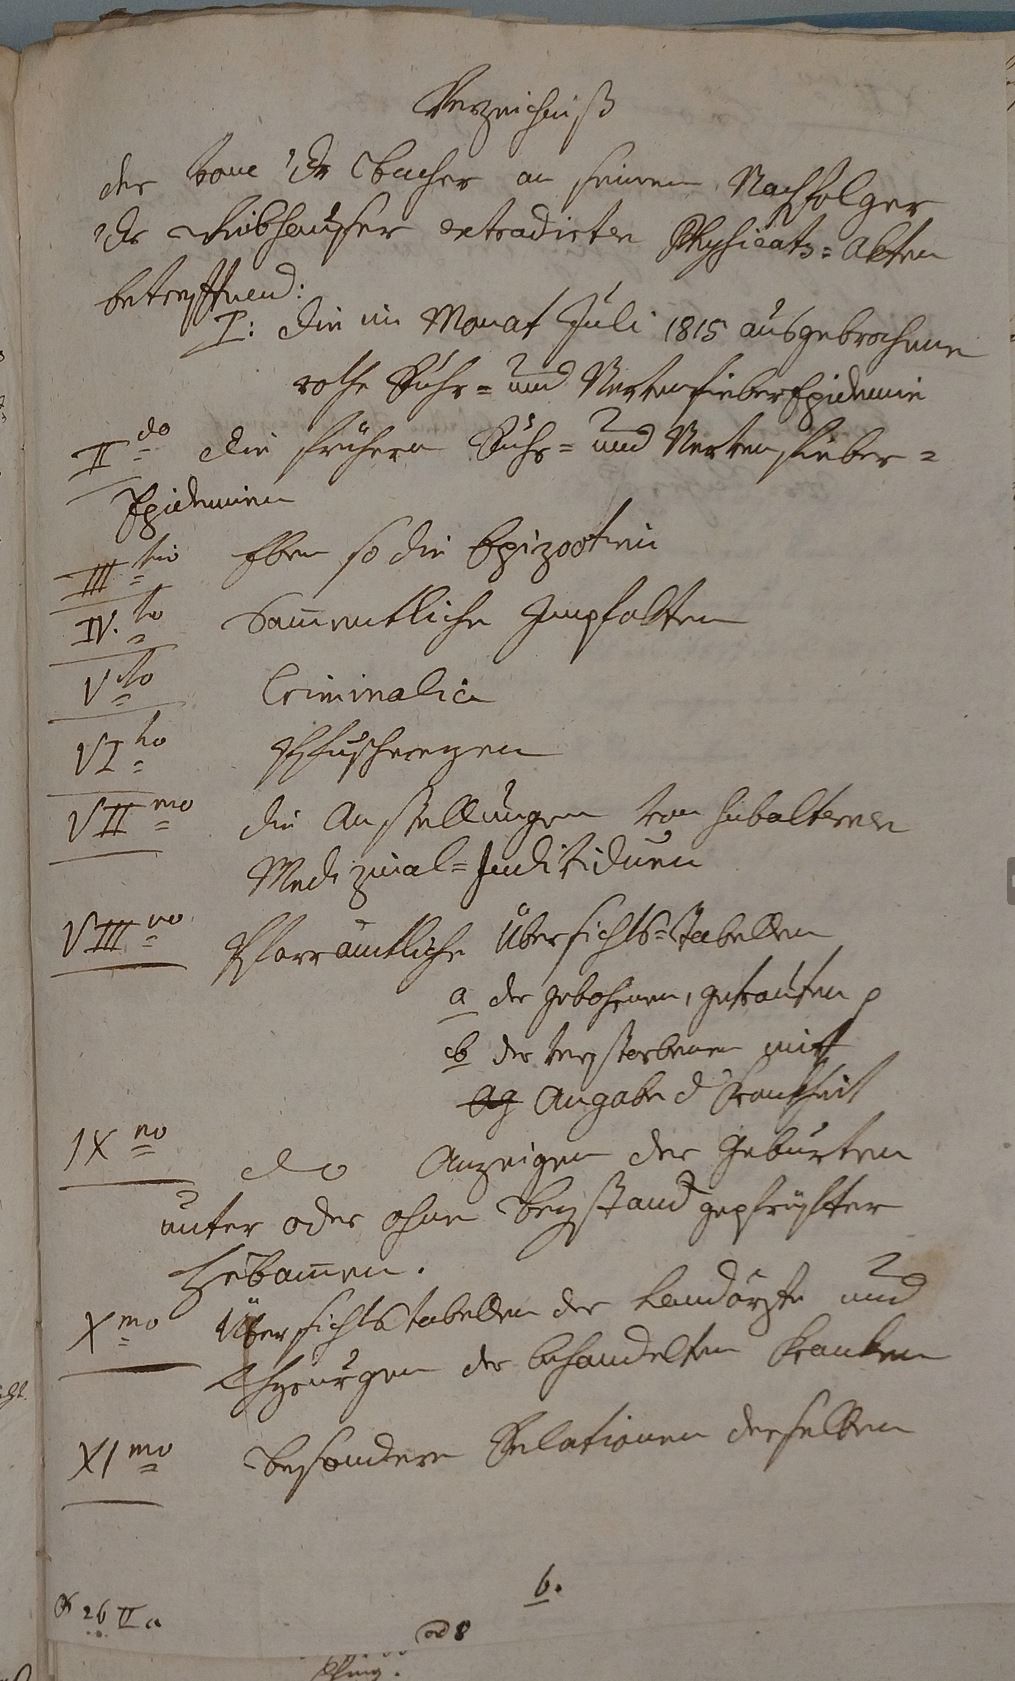 Verzeichniß
der vom Dr Bacher an seinem Nachfolger
Dr extradirten Physicats=Akten
betreffend:
I: die im Monat Juli 1815 ausgebrochene
rothe Ruhr= und Nervenfieber Epidemie
II do die frühern Ruhr= und Nervenfieber=
Epidemien
III tio Eben so die Epizootien
IV. to Sam̅entliche Impfakten
V to Criminalia
VI to Pfuschereyen
VII mo die Anstellungen von subalternen
Medizinal=Individuen
VIII vo Pfarramtliche Übersichts=Tabellen
a der gebohrnen, getrauten
b der verstorbenen mit
Angabe d Krankheit
IX no do Anzeigen der Geburten
unter oder ohne Beystand geprüfter
Hebam̅en.
X mo Übersichtstabellen der Landärzte und
Chyrurgen der behandelten Kranken
XI mo Besondere Relationen derselben
6.
26 II a
ad 8